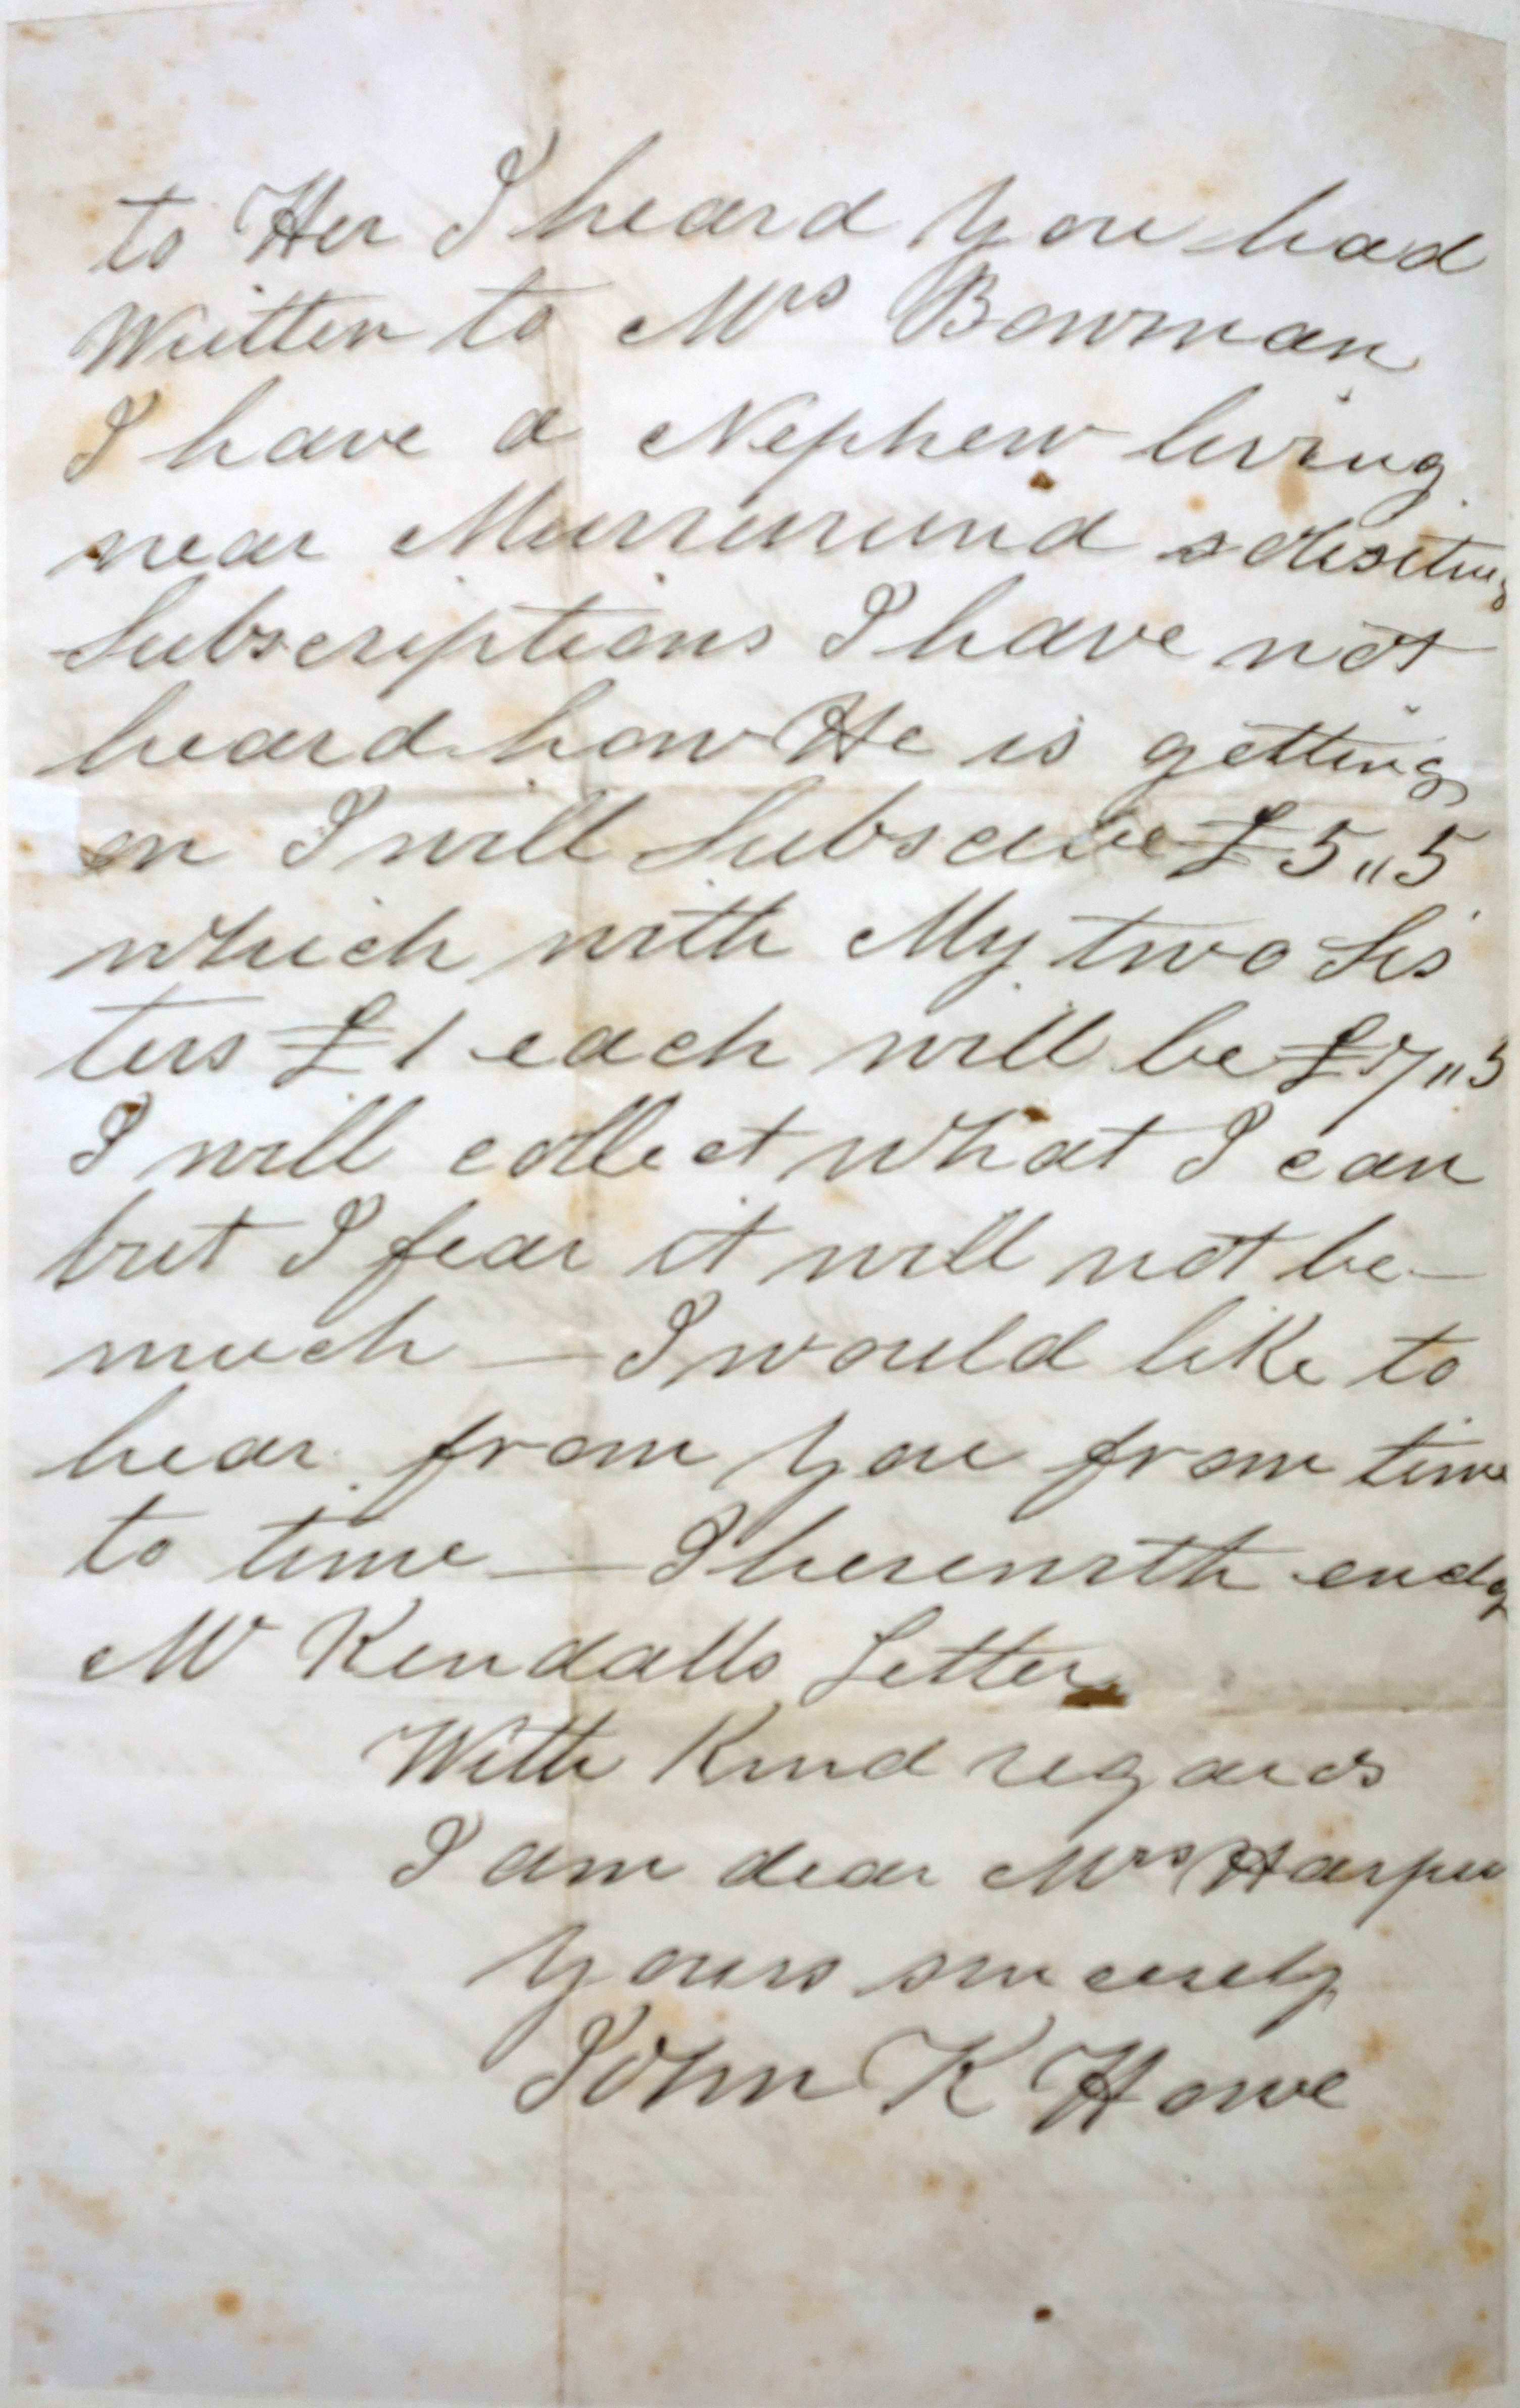 to Her I heard you had
Written to Mrs Bowman
I have a Nephew living
near Murrurund
Subscriptions I have not
heard how He is getting
on I will Subscribe £5,,5
which with My two Sis
ters £1 each will be £7,,5
I will collect what I can
but I fear it will not be
much — I would like to
hear from you from time
to time — I herewith
Mr Kendalls Letter
With Kind regards
I am dear Mrs Harper
yours sincerely
John K Howe